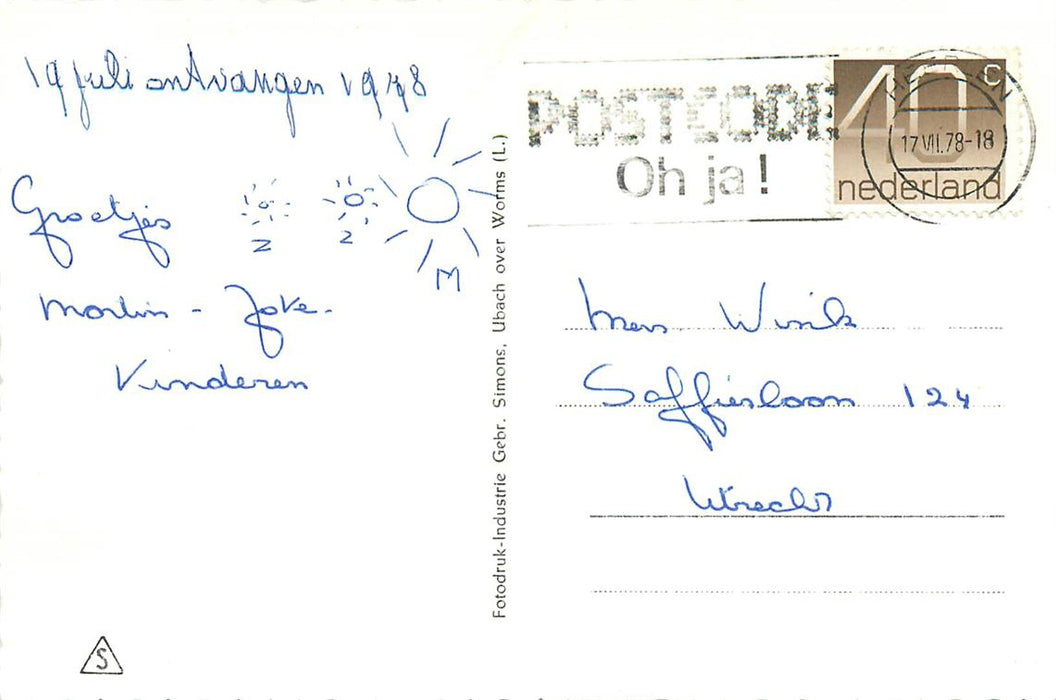 19 juli ontvangen 1978
Groetjes
z z M
Martin - Joke.
Kinderen
S
Fotodruk-Industrie Gebr. Simons, Ubach over Worms (L.)
POSTCODE
Oh ja!
40 c
nederland
HEERLEN
17 VII.78-18
Mevr. Wink
Saffierlaan 124
Utrecht